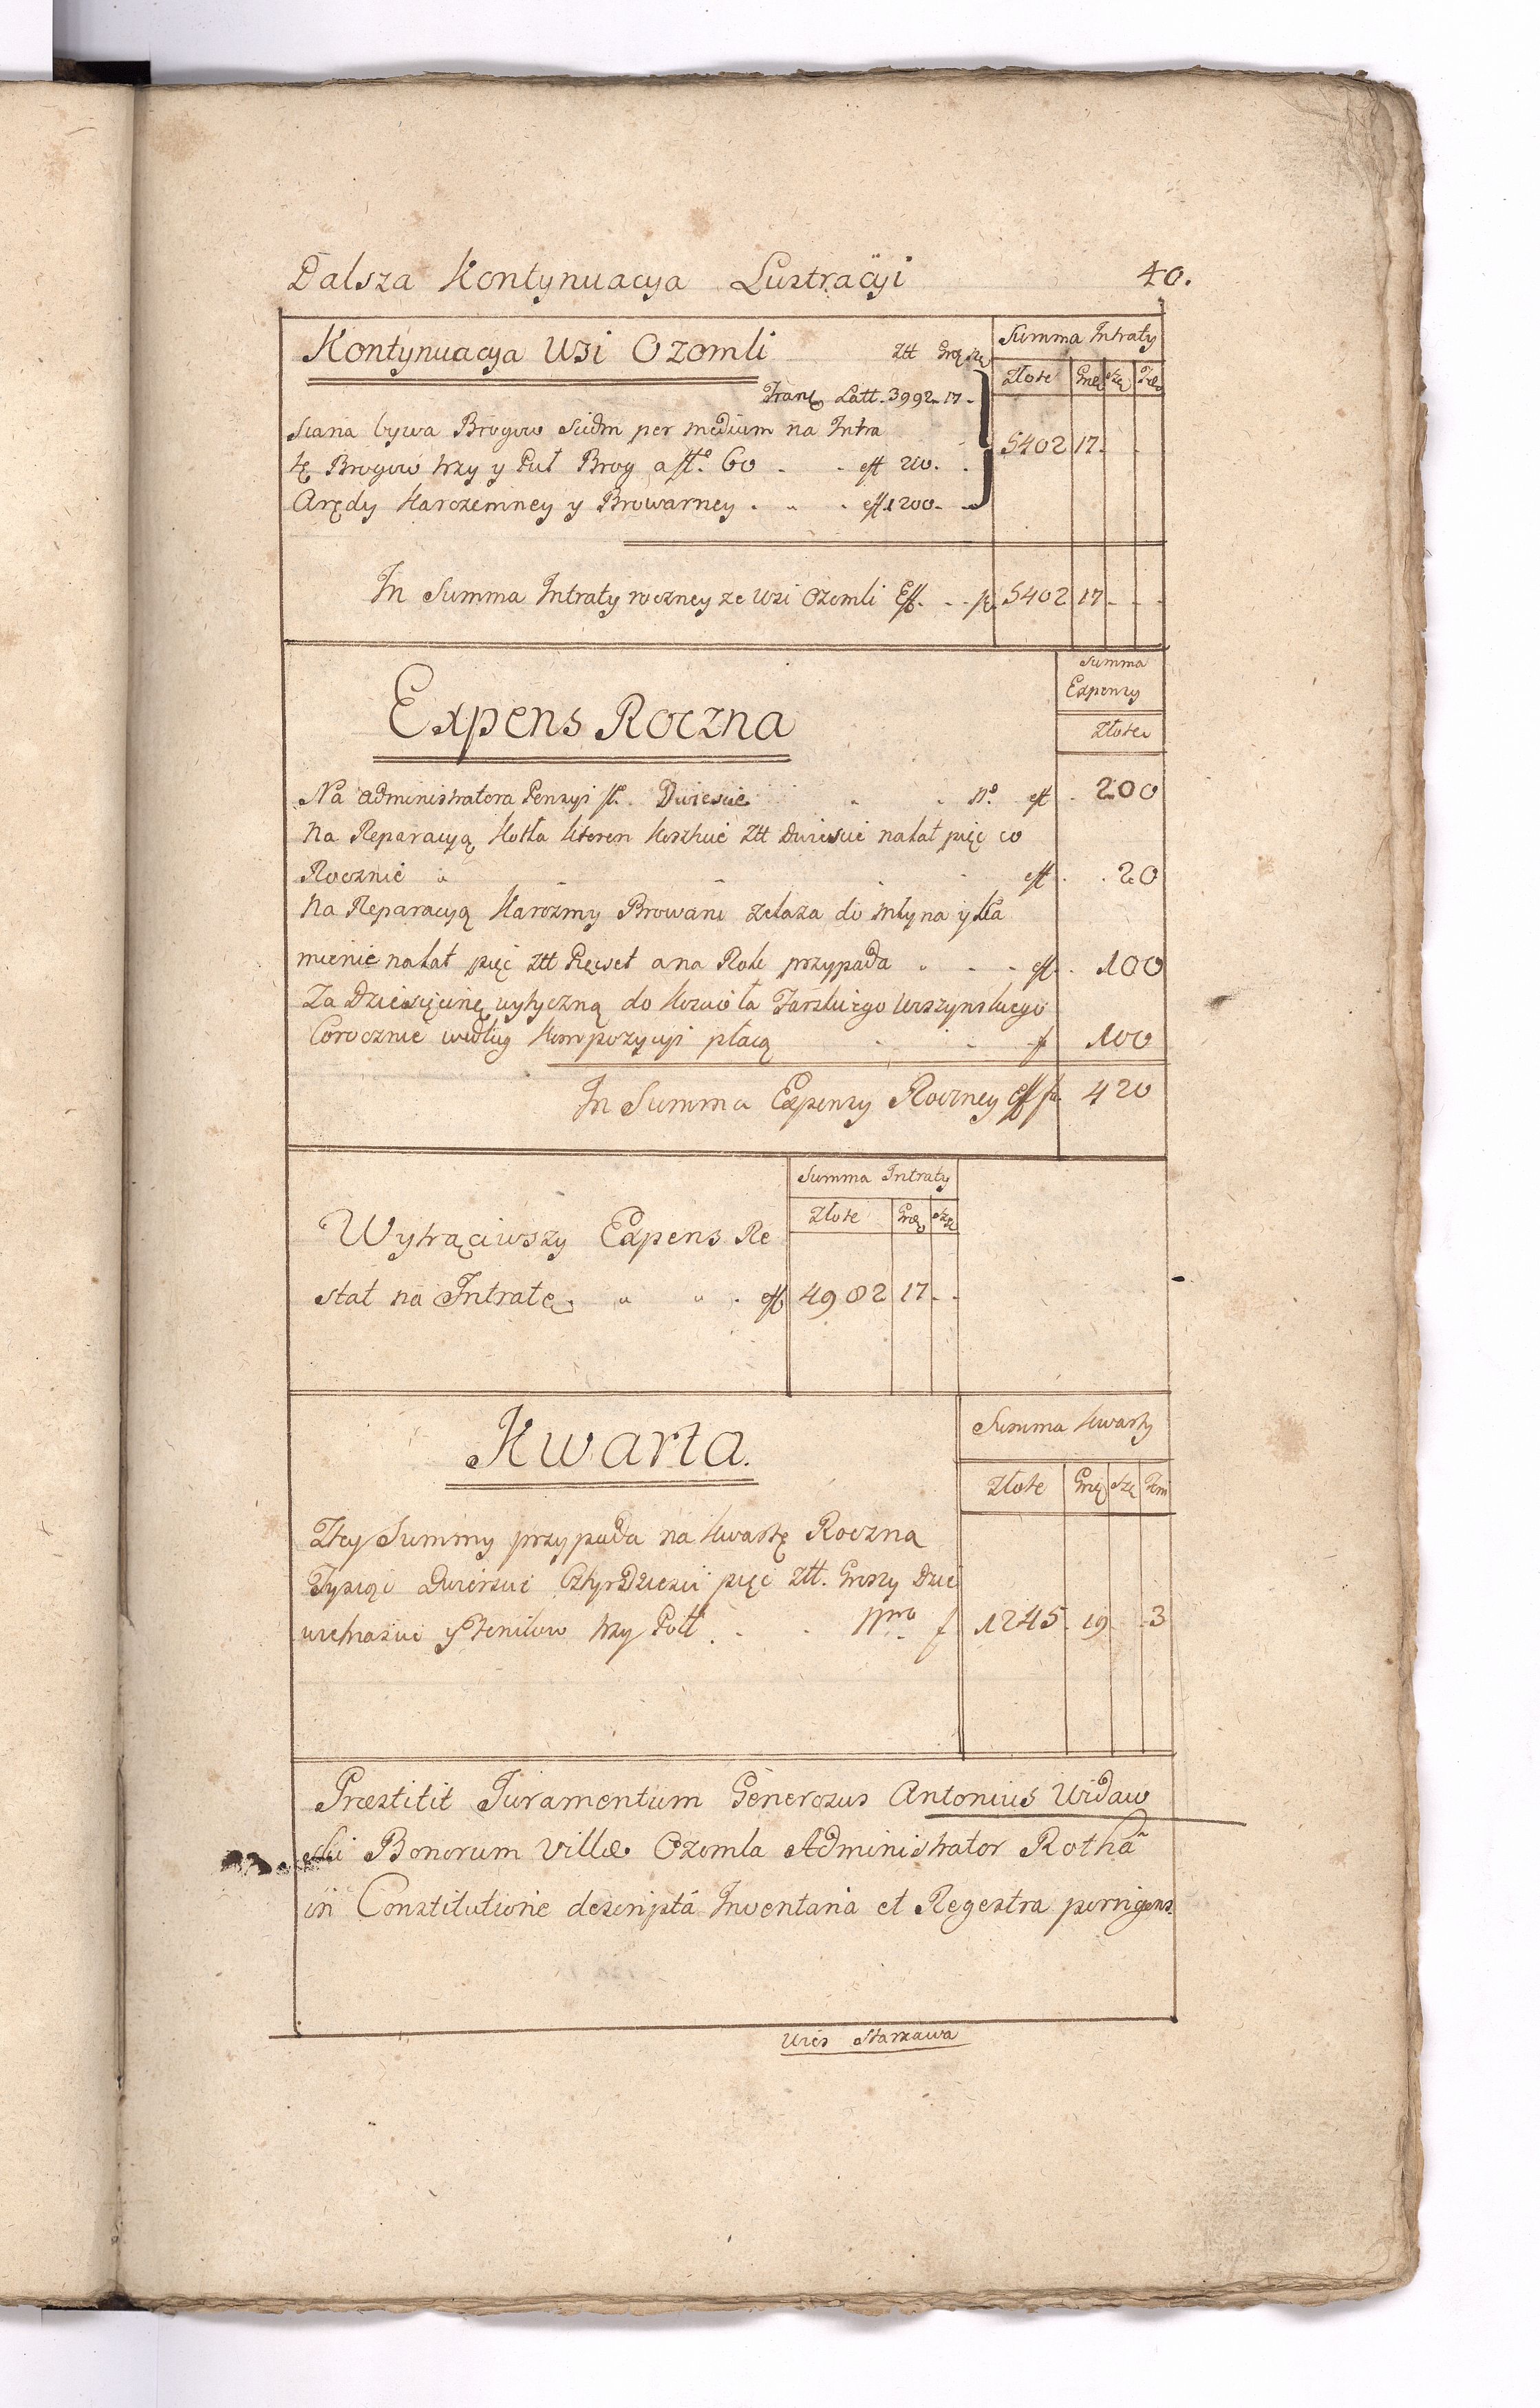 Dalsza Kontynuacya Lustracyi 40.
Kontynuacya Wsi Ozomli Ztt Gro szę Summa Intraty
Złote Gro szę
Tran Latt. 3992. 17.
Siana bywa Brogow siedm per medium na Intra
tę Brogow trzy y Puł Brog a fło. 60 . . eff 210. 5402 17.
Arędy Karczemney y Browarney . . . eff 1200.
In Summa Intraty roczney ze Wsi Ozomli Eff. . . fł. 5402 17 . . .
Summa
Expensy
Expens Roczna
Złote
Na Administratora Pensyi fło. Dwiescie . . No. eff . 200
Na Reparacyą Kotła ktoren kosztuie Ztt Dwiescie na lat pięc co
Rocznie eff . . 20
Na Reparacyą Karczmy Browaru zelaza do młyna y Ka
mienie na lat pięc Ztt Pięcset a na Rok przypada . . . eff . 100
Za Dziesięcinę wytyczną do Koscioła Farskiego Wiszynskiego
Corocznie według Kompozycyi płacą . . f 100
In Summa Expensy Roczney eff fł. 420
Summa Intraty
Złote Gro szę
Wytrąciwszy Expens Re
stat na Intratę . . . eff 4982 17 . .
Kwarta. Summa Kwarty
Złote Gro szę
Z tey Summy przypada na Kwartę Roczną
Tysiąc Dwiescie Cztyrdziesci pięc Ztt. Groszy Dzie
wietnascie y Szenikow trzy Poll . . . f 1245 . 19 . 3
Præstitit Juramentum Generosus Antonius Widaw
ski Bonorum Villæ Ozomla Administrator Rothâ
in Constitutione descriptâ Inventaria et Regestra porrigens
Wies Starzawa